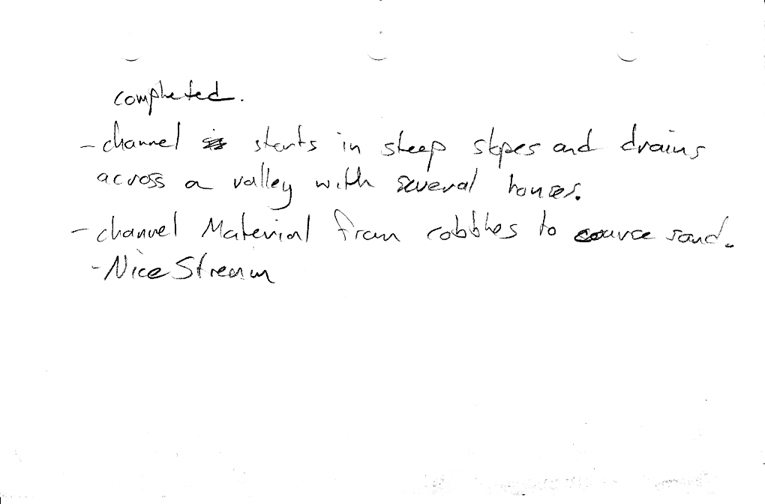 completed.
- channel starts in steep slopes and drains
across a valley with several houses.
- channel Material from cobbles to course sand.
- Nice Stream